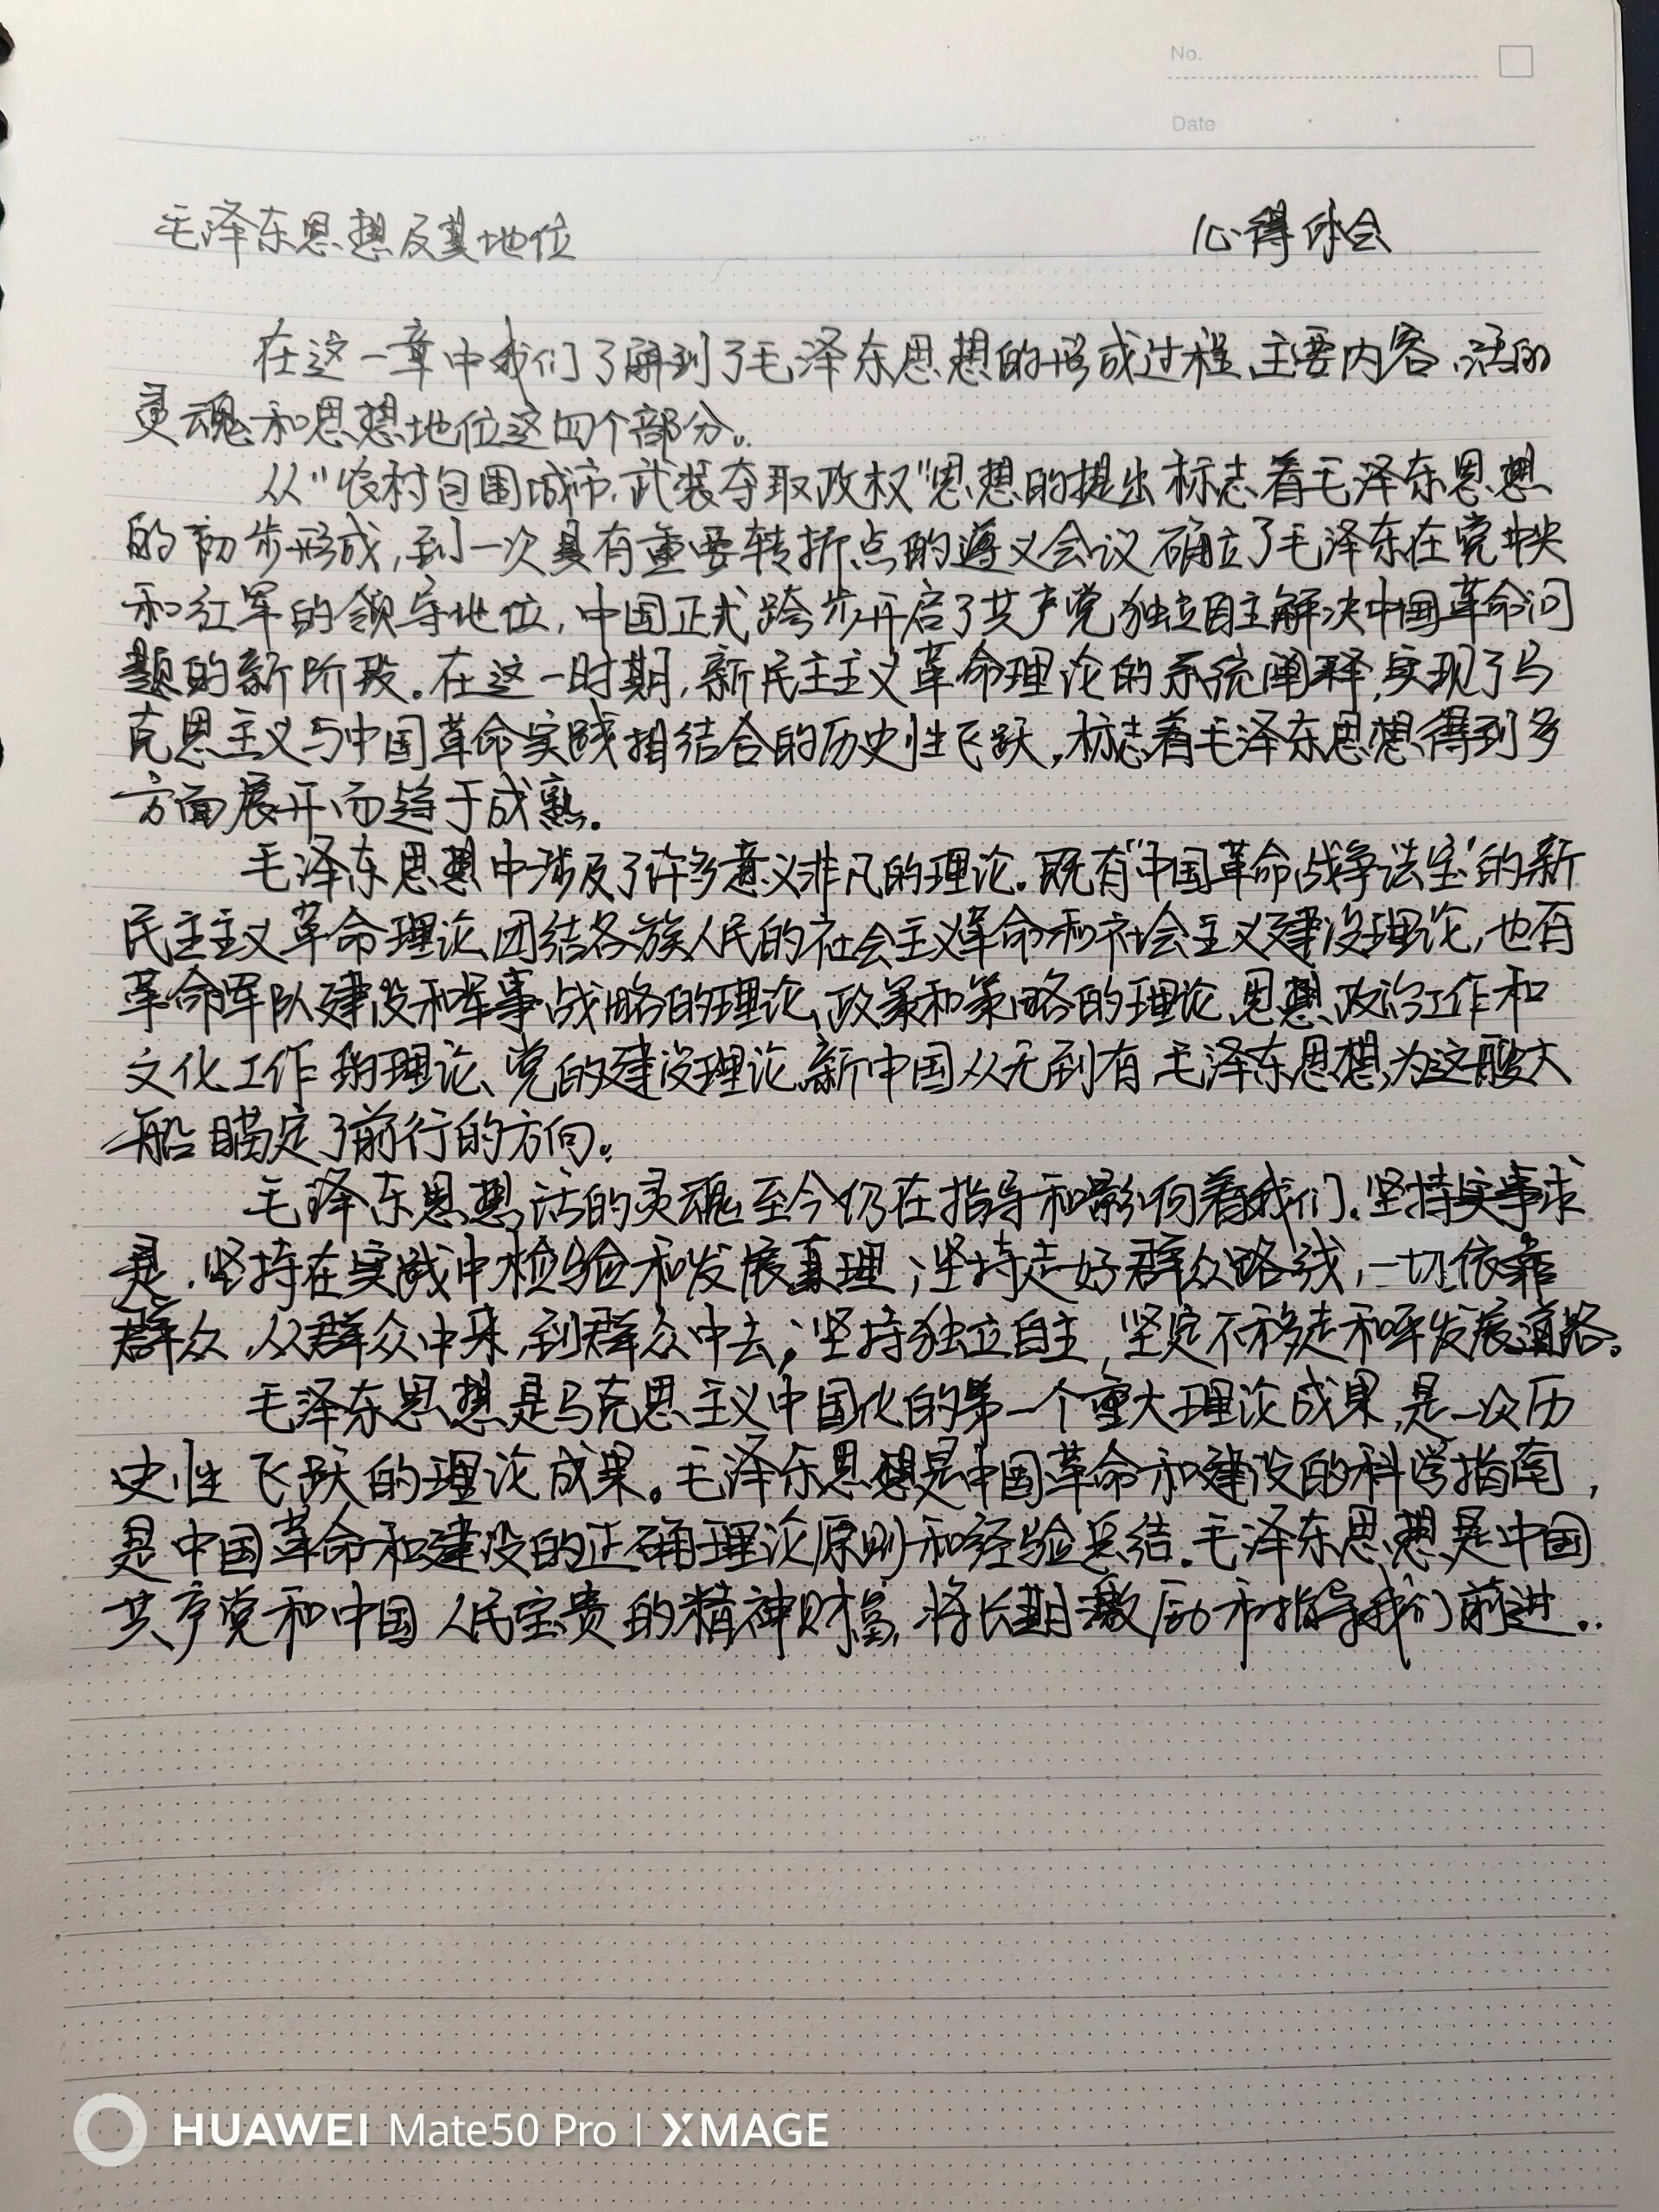 No.
Date
毛泽东思想及其地位 心得体会
在这一章中我们了解到了毛泽东思想的形成过程、主要内容、活的
灵魂和思想地位这四个部分。
从"农村包围城市,武装夺取政权"思想的提出标志着毛泽东思想
的初步形成,到一次具有重要转折点的遵义会议确立了毛泽东在党中央
和红军的领导地位,中国正式跨步开启了共产党独立自主解决中国革命问
题的新阶段。在这一时期,新民主主义革命理论的系统阐释,实现了马
克思主义与中国革命实践相结合的历史性飞跃,标志着毛泽东思想得到多
方面展开而趋于成熟。
毛泽东思想中涉及了许多意义非凡的理论。既有"中国革命战争法宝"的新
民主主义革命理论、团结各族人民的社会主义革命和社会主义建设理论,也有
革命军队建设和军事战略的理论、政策和策略的理论、思想政治工作和
文化工作的理论、党的建设理论。新中国从无到有,毛泽东思想为这艘大
船瞄定了前行的方向。
毛泽东思想活的灵魂至今仍在指导和影响着我们。坚持实事求
是,坚持在实践中检验和发展真理;坚持走好群众路线,一切依靠
群众,从群众中来,到群众中去;坚持独立自主,坚定不移走和平发展道路。
毛泽东思想是马克思主义中国化的第一个重大理论成果,是一次历
史性飞跃的理论成果。毛泽东思想是中国革命和建设的科学指南,
是中国革命和建设的正确理论原则和经验总结。毛泽东思想是中国
共产党和中国人民宝贵的精神财富,将长期激励和指导我们前进..
HUAWEI Mate50 Pro | XMAGE